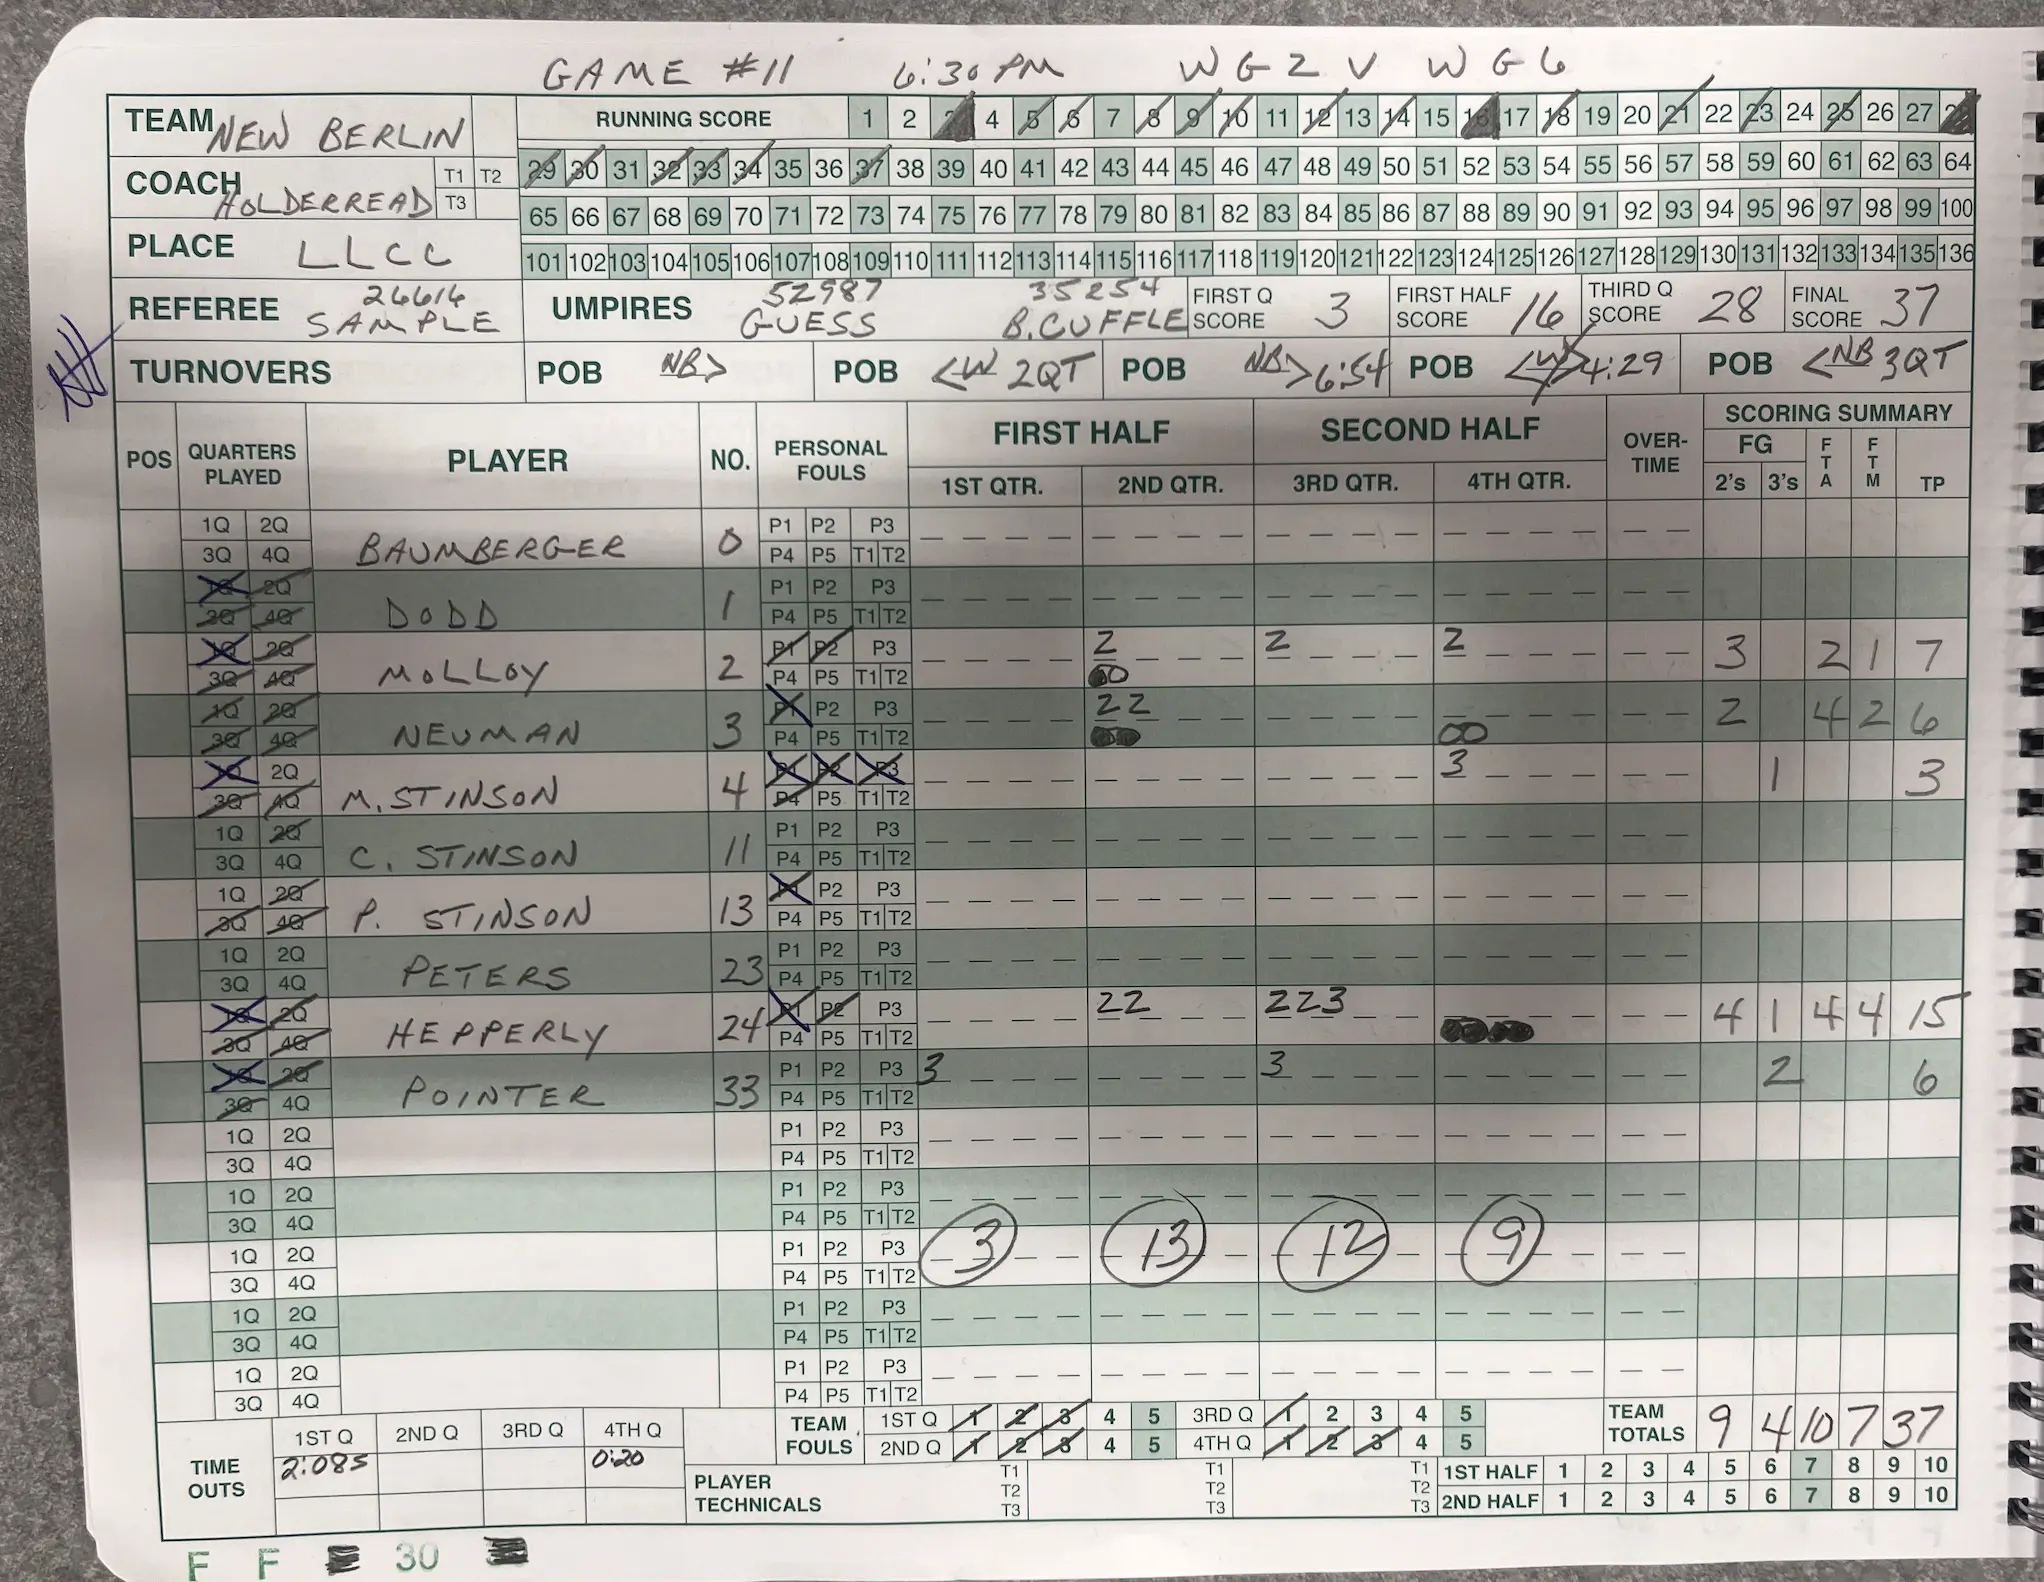 GAME #11 6:30 PM WG2 V WG6
TEAM NEW BERLIN
RUNNING SCORE 1 2 3 4 5 6 7 8 9 10 11 12 13 14 15 16 17 18 19 20 21 22 23 24 25 26 27 28
COACH HOLDERREAD T1 T2 T3
29 30 31 32 33 34 35 36 37 38 39 40 41 42 43 44 45 46 47 48 49 50 51 52 53 54 55 56 57 58 59 60 61 62 63 64
65 66 67 68 69 70 71 72 73 74 75 76 77 78 79 80 81 82 83 84 85 86 87 88 89 90 91 92 93 94 95 96 97 98 99 100
PLACE LLCC
101 102 103 104 105 106 107 108 109 110 111 112 113 114 115 116 117 118 119 120 121 122 123 124 125 126 127 128 129 130 131 132 133 134 135 136
REFEREE 26616 SAMPLE
UMPIRES 52987 GUESS 35254 B.CUFFLE
FIRST Q SCORE 3
FIRST HALF SCORE 16
THIRD Q SCORE 28
FINAL SCORE 37
TURNOVERS POB NB> POB <W 2QT POB NB> 6:54 POB <W> 4:29 POB <NB 3QT
POS QUARTERS PLAYED PLAYER NO. PERSONAL FOULS FIRST HALF SECOND HALF OVER-TIME SCORING SUMMARY
1ST QTR. 2ND QTR. 3RD QTR. 4TH QTR. FG 2's 3's FTA FTM TP
1Q 2Q P1 P2 P3
3Q 4Q BAUMBERGER 0 P4 P5 T1 T2
1Q 2Q P1 P2 P3
3Q 4Q DODD 1 P4 P5 T1 T2
1Q 2Q P1 P2 P3 2 2 2
3Q 4Q MOLLOY 2 P4 P5 T1 T2 3 2 1 7
1Q 2Q P1 P2 P3 22
3Q 4Q NEUMAN 3 P4 P5 T1 T2 2 4 2 6
1Q 2Q P1 P2 P3 3
3Q 4Q M. STINSON 4 P4 P5 T1 T2 1 3
1Q 2Q P1 P2 P3
3Q 4Q C. STINSON 11 P4 P5 T1 T2
1Q 2Q P1 P2 P3
3Q 4Q P. STINSON 13 P4 P5 T1 T2
1Q 2Q P1 P2 P3
3Q 4Q PETERS 23 P4 P5 T1 T2
1Q 2Q P1 P2 P3 22 223
3Q 4Q HEPPERLY 24 P4 P5 T1 T2 4 1 4 4 15
1Q 2Q P1 P2 P3 3 3
3Q 4Q POINTER 33 P4 P5 T1 T2 2 6
1Q 2Q P1 P2 P3
3Q 4Q P4 P5 T1 T2
1Q 2Q P1 P2 P3
3Q 4Q P4 P5 T1 T2
1Q 2Q P1 P2 P3 3 13 12 9
3Q 4Q P4 P5 T1 T2
1Q 2Q P1 P2 P3
3Q 4Q P4 P5 T1 T2
1Q 2Q P1 P2 P3
3Q 4Q P4 P5 T1 T2
TIME OUTS 1ST Q 2ND Q 3RD Q 4TH Q
2:08S 0:20
TEAM FOULS 1ST Q 1 2 3 4 5 3RD Q 1 2 3 4 5
2ND Q 1 2 3 4 5 4TH Q 1 2 3 4 5
TEAM TOTALS 9 4 10 7 37
PLAYER TECHNICALS T1 T2 T3 T1 T2 T3 T1 T2 T3
1ST HALF 1 2 3 4 5 6 7 8 9 10
2ND HALF 1 2 3 4 5 6 7 8 9 10
F F 30